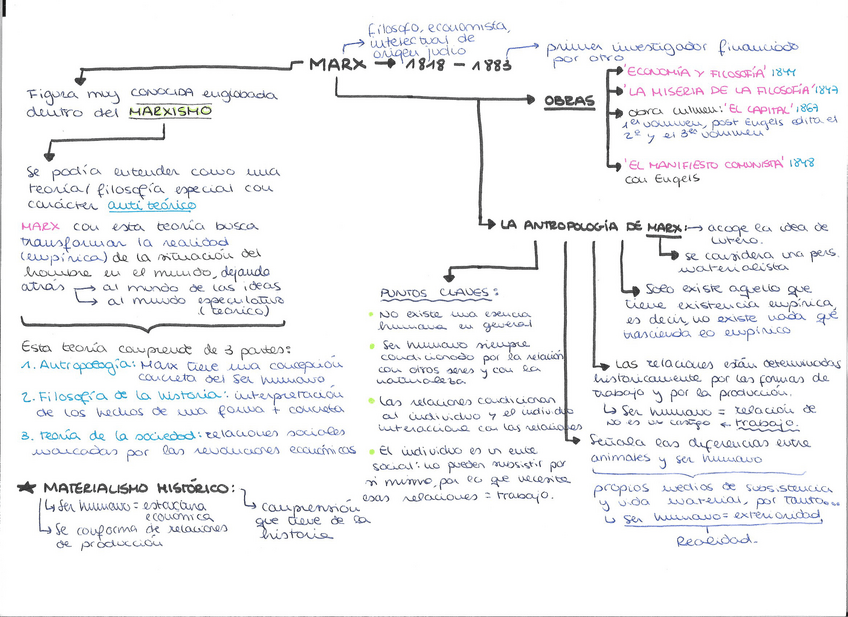 filósofo, economista,
intelectual de
origen judío
MARX → 1818 - 1883
→ primer investigador financiado
por otro
Figura muy CONOCIDA englobada
dentro del MARXISMO
OBRAS
'ECONOMÍA Y FILOSOFÍA' 1844
'LA MISERIA DE LA FILOSOFÍA' 1847
obra culmen: 'EL CAPITAL' 1867
1er volumen, post Engels edita el
2º y el 3er volumen
'EL MANIFIESTO COMUNISTA' 1848
con Engels
Se podía entender como una
teoría/filosofía especial con
carácter antiteórico
MARX con esta teoría busca
transformar la realidad
(empírica) de la situación del
hombre en el mundo, dejando
atrás → al mundo de las ideas
→ al mundo especulativo
(teórico)
Esta teoría comprende de 3 partes:
1. Antropología: Marx tiene una concepción
concreta del ser humano
2. Filosofía de la historia: interpretación
de los hechos de una forma + concreta
3. Teoría de la sociedad: relaciones sociales
marcadas por las revoluciones económicas
★ MATERIALISMO HISTÓRICO:
↳ Ser humano = estructura
económica
↳ Se conforma de relaciones
de producción
↳ comprensión
que tiene de la
historia
LA ANTROPOLOGÍA DE MARX: → acoge la idea de
Lutero.
se considera una pers.
materialista
Solo existe aquello que
tiene existencia empírica,
es decir, no existe nada que
trascienda lo empírico
Las relaciones están determinadas
históricamente por las formas de
trabajo y por la producción.
↳ Ser humano = relación de
no es un castigo ← trabajo.
Señala las diferencias entre
animales y ser humano
propios medios de subsistencia
y vida material, por tanto...
↳ Ser humano = exterioridad
Realidad.
PUNTOS CLAVES:
• No existe una esencia
humana en general
• Ser humano siempre
condicionado por la relación
con otros seres y con la
naturaleza
• Las relaciones condicionan
al individuo y el individuo
interacciona con las relaciones
• El individuo es un ente
social: no pueden subsistir por
si mismo, por lo que necesite
esas relaciones = trabajo.